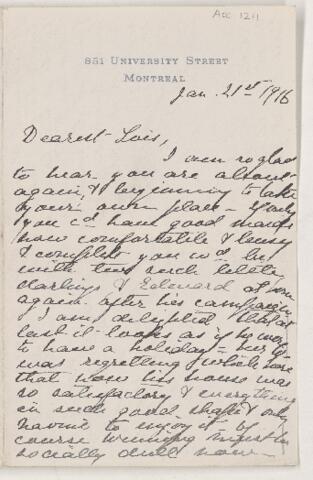 Acc 1211
851 University Street
Montreal
Jan. 21st 1916
Dearest Lois,
I am so glad
to hear you are about
again, & beginning to take
your own place –
you c'd have good maids
how comfortable & 
& complete you w'd be
with two such little
darlings & Edward at home
again after his campaign
I am delighted that at
last it looks as if he were
to have a holiday –
was regretting
that now his house was
so satisfactory & everything
in such good shape & only
having to enjoy it of
course winning
socially dull now –